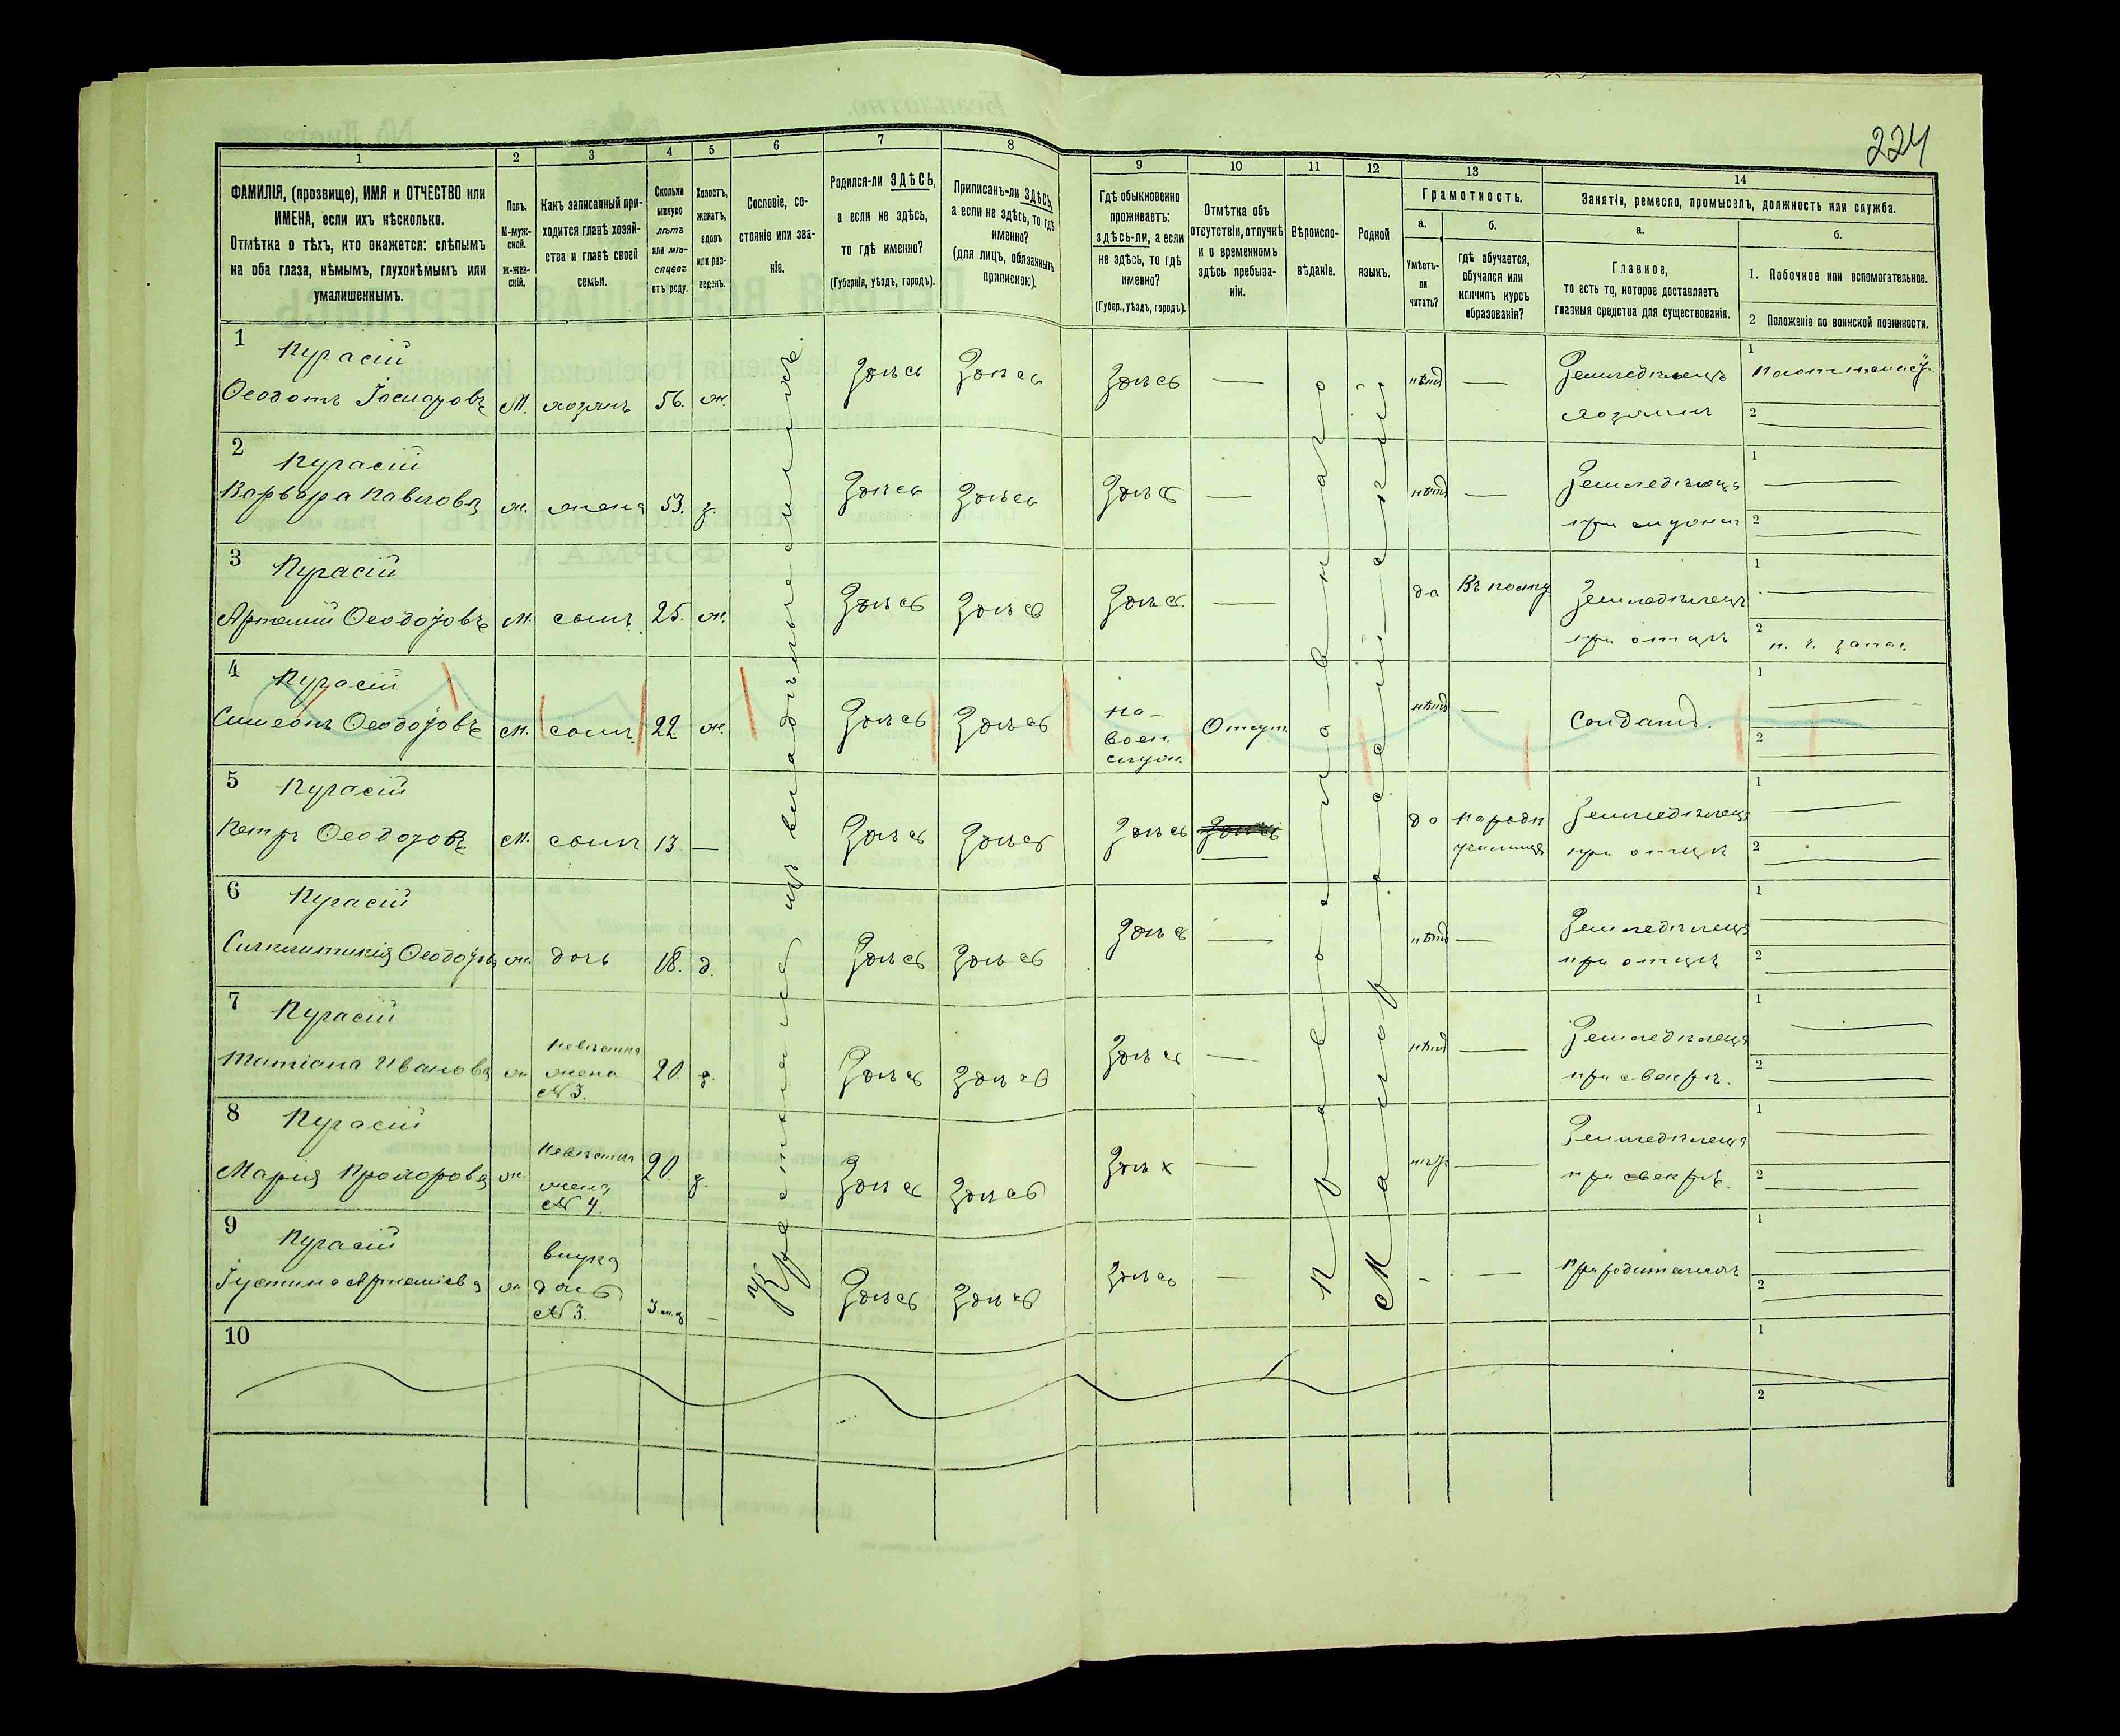 224
1
2
3
4
5
6
7
8
9
10
11
12
13
14
ФАМИЛІЯ, (прозвище), ИМЯ и ОТЧЕСТВО или
ИМЕНА, если ихъ нѣсколько.
Отмѣтка о тѣхъ, кто окажется: слѣпымъ
на оба глаза, нѣмымъ, глухонѣмымъ или
умалишеннымъ.
Полъ.
М-муж-
ской.
Ж-жен-
скій.
Какъ записанный при-
ходится главѣ хозяй-
ства и главѣ своей
семьи.
Сколько
минуло
лѣтъ
или мѣ-
сяцевъ
отъ роду.
Холостъ,
женатъ,
вдовъ
или раз-
веденъ.
Сословіе, со-
стояніе или зва-
ніе.
Родился-ли ЗДѢСЬ,
а если не здѣсь,
то гдѣ именно?
(Губернія, уѣздъ, городъ).
Приписанъ-ли ЗДѢСЬ,
а если не здѣсь, то гдѣ
именно?
(для лицъ, обязанныхъ
припискою).
Гдѣ обыкновенно
проживаетъ:
здѣсь-ли, а если
не здѣсь, то гдѣ
именно?
(Губер., уѣздъ, городъ).
Отмѣтка объ
отсутствіи, отлучкѣ
и о временномъ
здѣсь пребыва-
ніи.
Вѣроиспо-
вѣданіе.
Родной
языкъ.
Грамотность.
а.
Умѣетъ-
ли
читать?
б.
гдѣ обучается,
обучался или
кончилъ курсъ
образованія?
Занятіе, ремесло, промыселъ, должность или служба.
а.
Главное,
то есть то, которое доставляетъ
главныя средства для существованія.
б.
1. Побочное или вспомогательное.
2 Положеніе по воинской повинности.
Крестьяне изъ владѣльческихъ
Православнаго
Малороссійскій
1
Пугасій
Ѳеодотъ М. хозяинъ 56. ж. Здѣсь Здѣсь Здѣсь — нѣтъ — Земледѣлецъ
хозяинъ
1
2
2
Пугасій
Варвара Павлова ж. жена 53. з. Здѣсь Здѣсь Здѣсь — нѣтъ — Земледѣлица
при мужѣ
1
2
3
Пугасій
Артемій М. сынъ 25. ж. Здѣсь Здѣсь Здѣсь — да Въ полку Земледѣлецъ
при отцѣ
1
2 н. ч. запас.
4
Пугасій
Симеонъ М. сынъ 22 ж. Здѣсь Здѣсь на
воен.
служ. Отсут. нѣтъ — Солдатъ.
1
2
5
Пугасій
Петръ М. сынъ 13 — Здѣсь Здѣсь Здѣсь — да народн
училище Земледѣлецъ
при отцѣ
1
2
6
Пугасій
Синклитикія ж. дочь 18. д. Здѣсь Здѣсь Здѣсь — нѣтъ — Земледѣлица
при отцѣ
1
2
7
Пугасій
Татіана Иванова ж невѣстка
жена
№ 3. 20. з. Здѣсь Здѣсь Здѣсь — нѣтъ — Земледѣлица
при свекрѣ.
1
2
8
Пугасій
Марія Прохорова ж. невѣстка
жена
№ 4. 20. з. Здѣсь Здѣсь Здѣсь — нѣтъ — Земледѣлица
при свекрѣ.
1
2
9
Пугасій
Іустина Артеміева ж внука
дочь
№ 3. 3 м. — Здѣсь Здѣсь Здѣсь — - — При родителяхъ
1
2
10
1
2